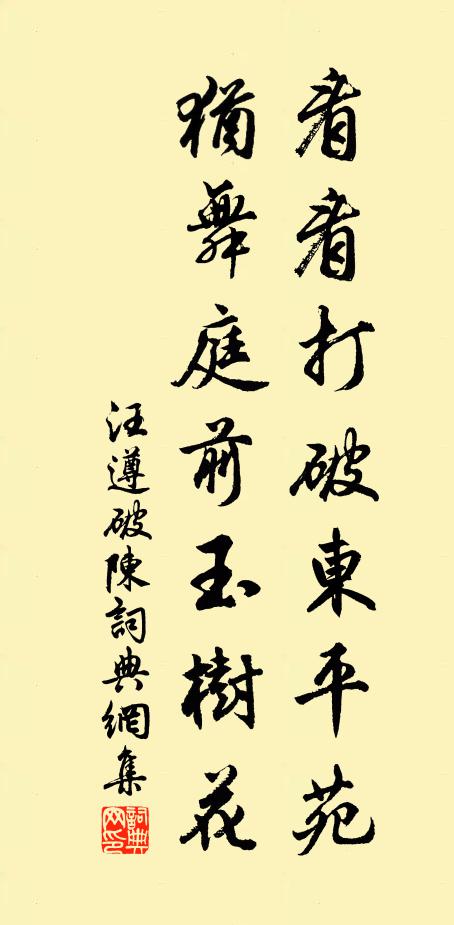 看看打破東平苑
猶舞庭前玉樹花
汪遵破陳詞典網集
詞典網印